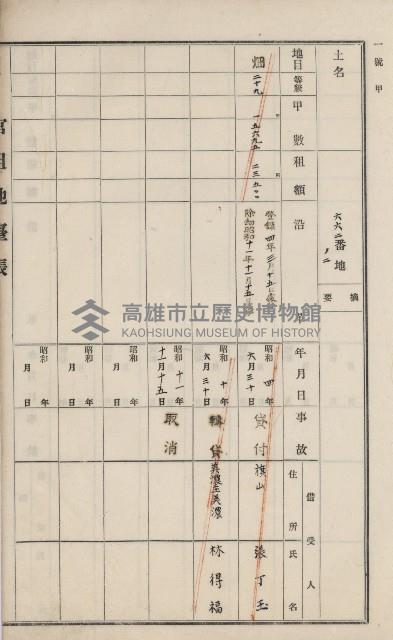 一號甲
土名
六六二番地
ノ二
摘要
地目
等級
甲數
租額
沿革
年月日
事故
借受人
住所
氏名
畑
二十九
一五六九五
二三五〇〇
登錄 四年三月十五日
除却昭和十一年十一月十五日
昭和 四年 六月三十日
貸付
旗山
張丁玉
昭和 十年 六月三十日
轉貸
美濃庄美濃
林得福
昭和 十一年 十一月十五日
取消
昭和 年 月 日
昭和 年 月 日
昭和 年 月 日
官租地臺帳
高雄市立歷史博物館
KAOHSIUNG MUSEUM OF HISTORY